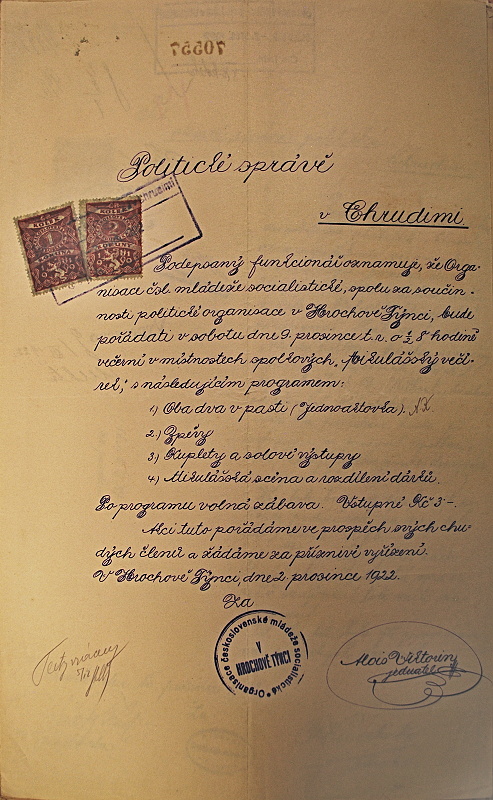 70557
Politické správě
v Chrudimi.
Chrudimi
KOLEK
1
KORUNA
KOLEK
2
KORUNY
Podepsaný funkcionář oznamuje, že Orga-
nisace čsl. mládeže socialistické, spolu za součin-
nosti politické organisace v Hrochově Týnci, bude
pořádati v sobotu dne 9. prosince t. r. o ½ 8 hodině
večerní v místnostech spolkových, "Mikulášský večí-
rek", s následujícím programem:
1) Oba dva v pasti (Jednoaktovka).
2.) Zpěvy
3) Kuplety a solové výstupy
4) Mikulášská scéna a rozdílení dárků.
Po programu volná zábava. Vstupné Kč 3-.
Akci tuto pořádáme ve prospěch svých chu-
dých členů a žádáme za příznivé vyřízení.
V Hrochově Týnci, dne 2. prosince 1922.
Za
Organisace československé mládeže socialistické
V
HROCHOVĚ TÝNCI
Alois Viktorin
jednatel